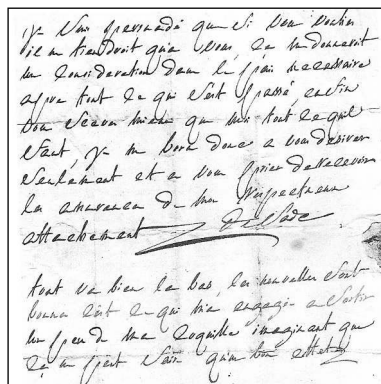 je suis persuadé que si vous vouliez
il ne tiendroit qu'a vous, ce
consideration dans le païs necessaire
apres tout ce qui s'est passé enfin
vous scavez mieux que moi tout ce qu'il
faut, je me borne donc a vous desirer
seulement et a vous prier de recevoir
les assurances de mon respectueux
attachement De Sade
tout va bien la bas, les nouvelles sont
bonnes c'est ce qui m'a engagé a sortir
un peu de ma coquille imaginant que
ca ne peut faire qu'un bon effet